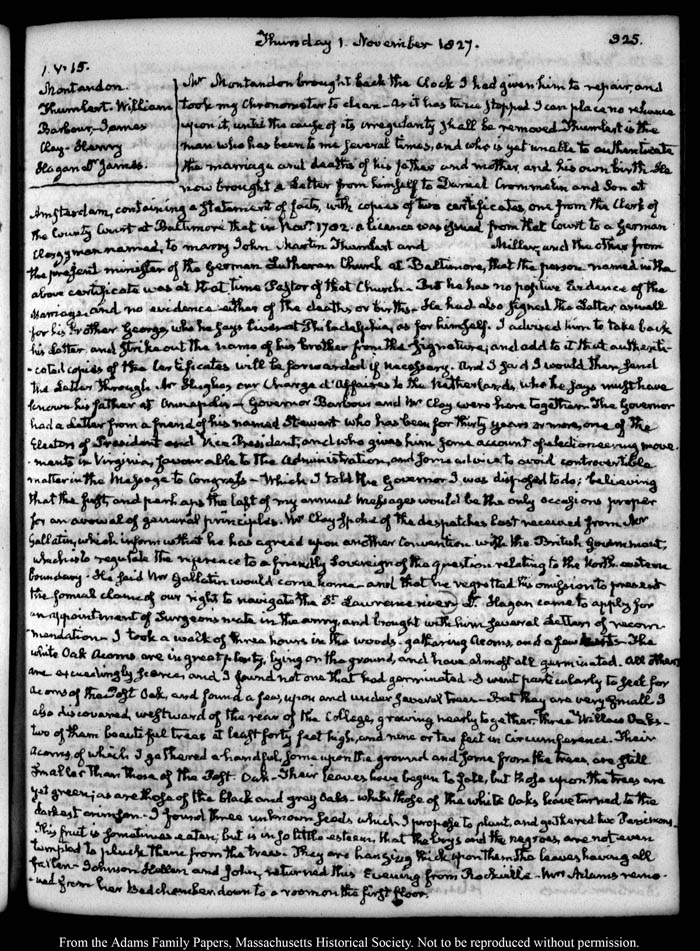 Thursday 1. November 1827.
325.
1. V. 15.
Montandon.
Thumlert. William
Barbour. James
Clay. Henry
Hagan Dr James.
Mr Montandon brought back the Clock I had given him to repair, and
took my Chronometer to clean. As it has twice stopped I can place no reliance
upon it, until the cause of its irregularity shall be removed. Thumlert is the
man who has been to me several times, and who is yet unable to authenticate
the marriage and deaths of his father and mother, and his own birth. He
now brought a Letter from himself to Daniel Crommelin and Son at
Amsterdam, containing a statement of facts, with copies of two certificates, one from the Clerk of
the County Court at Baltimore that in Novr. 1782. a licence was issued from that Court to a German
Clergyman named, to marry John Martin Thumlert and Miller, and the other from
the present minister of the German Lutheran Church at Baltimore, that the person named in the
above certificate was at that time Pastor of that Church. But he has no positive Evidence of the
Marriage, and no evidence either of the deaths or births. He had also signed the Letter, as well
for his brother George, who he says lives at Philadelphia, as for himself. I advised him to take back
his Letter, and strike out the name of his brother from the signature; and add to it that authenti-
-cated copies of the Certificates will be forwarded if necessary. And I said I would then send
the Letter through Mr Hughes our Chargé d'Affaires to the Netherlands, who he says must have
known his father at Annapolis. Governor Barbour and Mr Clay were here together. The Governor
had a Letter from a friend of his named Stewart who has been for thirty years or more, one of the
Electors of President and Vice President, and who gives him some account of electioneering move-
ments in Virginia, favourable to the Administration, and some advice to avoid controvertible
matter in the Message to Congress. Which I told the Governor I was disposed to do; believing
that the first, and perhaps the last of my annual Messages would be the only occasions proper
for an avowal of general principles. Mr Clay spoke of the despatches last received from Mr
Gallatin, which inform us that he has agreed upon another Convention with the British Government,
which is to regulate the reference to a friendly Sovereign of the question relating to the North eastern
boundary. He said Mr Gallatin would come home and that he regretted his omission to present
the formal claim of our right to navigate the St. Lawrence river. Dr. Hagan came to apply for
an appointment of Surgeons mate in the army, and brought with him several Letters of recom-
mendation. I took a walk of three hours in the woods. gathering Acorns, and a few The
white Oak Acorns are in great plenty, lying on the ground, and have almost all germinated. All others
are exceedingly scarce, and I found not one that had germinated. I went particularly to seek for
Acorns of the Post Oak, and found a few, upon and under several trees. But they are very small. I
also discovered, westward of the rear of the College, growing nearly together, three Willow Oaks.
two of them beautiful trees at least forty feet high, and nine or ten feet in Circumference. Their
Acorns, of which I gathered a handful, some upon the ground and some from the trees, are still
smaller than those of the Post Oak. Their leaves have begun to fade, but those upon the trees are
yet green; as are those of the black and grey Oaks. while those of the white Oaks have turned to the
darkest crimson. I found three unknown seeds which I propose to plant, and gathered two Persimons.
This fruit is sometimes eaten; but is in so little esteem, that the boys and the negroes, are not even
tempted to pluck them from the trees. They are hanging thick upon them the leaves having all
fallen. Johnson Hellen and John, returned this Evening from Rockville. Mrs Adams remo-
-ved from her bed chamber down to a room on the first floor.
From the Adams Family Papers, Massachusetts Historical Society. Not to be reproduced without permission.